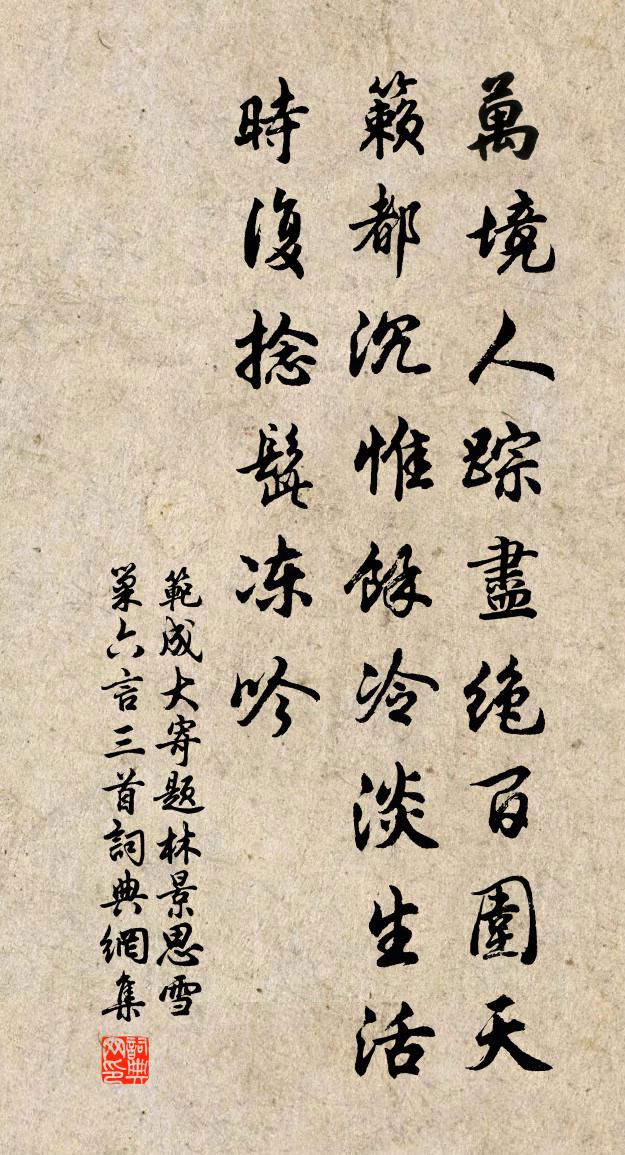 萬境人踪盡絕百圍天
籟都沉惟餘冷淡生活
時復捻髭凍吟
範成大寄題林景思雪
巢六言三首詞典網集
詞典網印